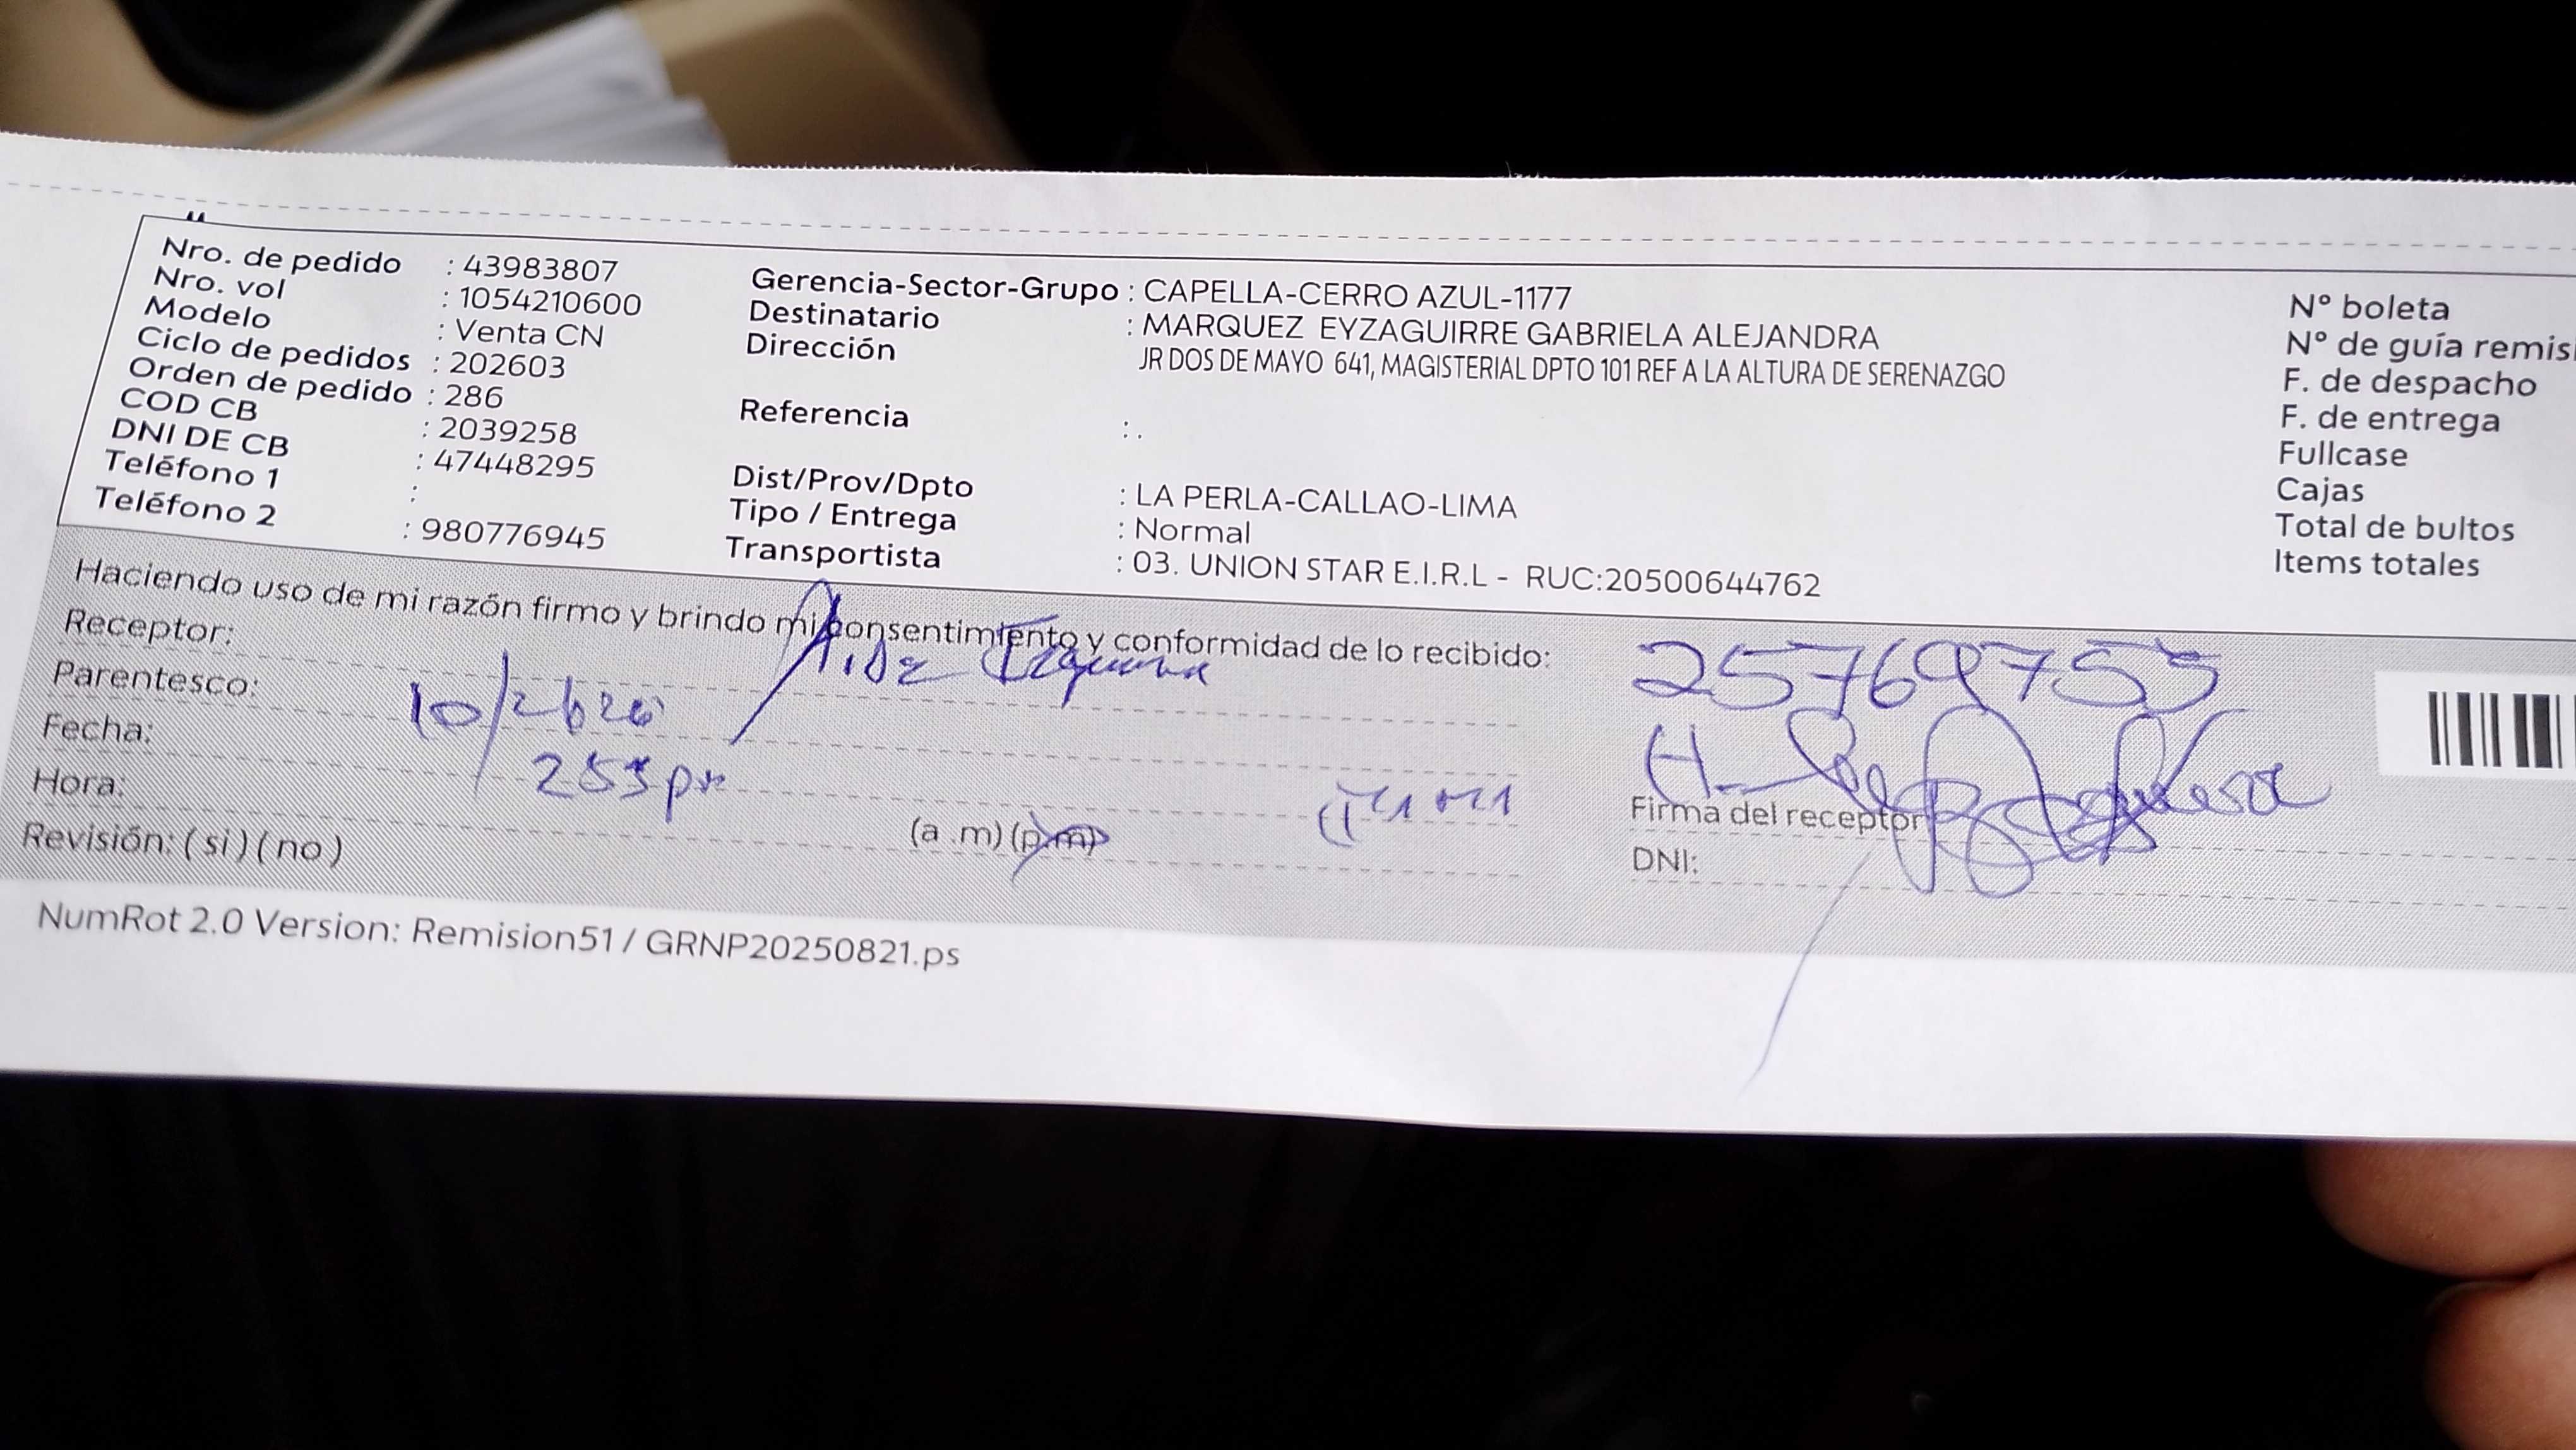 Nro. de pedido : 43983807
Nro. vol : 1054210600
Modelo : Venta CN
Ciclo de pedidos : 202603
Orden de pedido : 286
COD CB : 2039258
DNI DE CB : 47448295
Teléfono 1 :
Teléfono 2 : 980776945
Gerencia-Sector-Grupo : CAPELLA-CERRO AZUL-1177
Destinatario : MARQUEZ EYZAGUIRRE GABRIELA ALEJANDRA
Dirección JR DOS DE MAYO 641, MAGISTERIAL DPTO 101 REF A LA ALTURA DE SERENAZGO
Referencia : .
Dist/Prov/Dpto : LA PERLA-CALLAO-LIMA
Tipo / Entrega : Normal
Transportista : 03. UNION STAR E.I.R.L - RUC:20500644762
N° boleta
N° de guía remisi
F. de despacho
F. de entrega
Fullcase
Cajas
Total de bultos
Items totales
Haciendo uso de mi razón firmo y brindo mi consentimiento y conformidad de lo recibido:
Receptor: Aida
Parentesco:
Fecha:
Hora: 253 pm
(a .m) (p.m)
Revisión: ( si ) ( no )
25769755
Firma del receptor
DNI:
NumRot 2.0 Version: Remision51 / GRNP20250821.ps